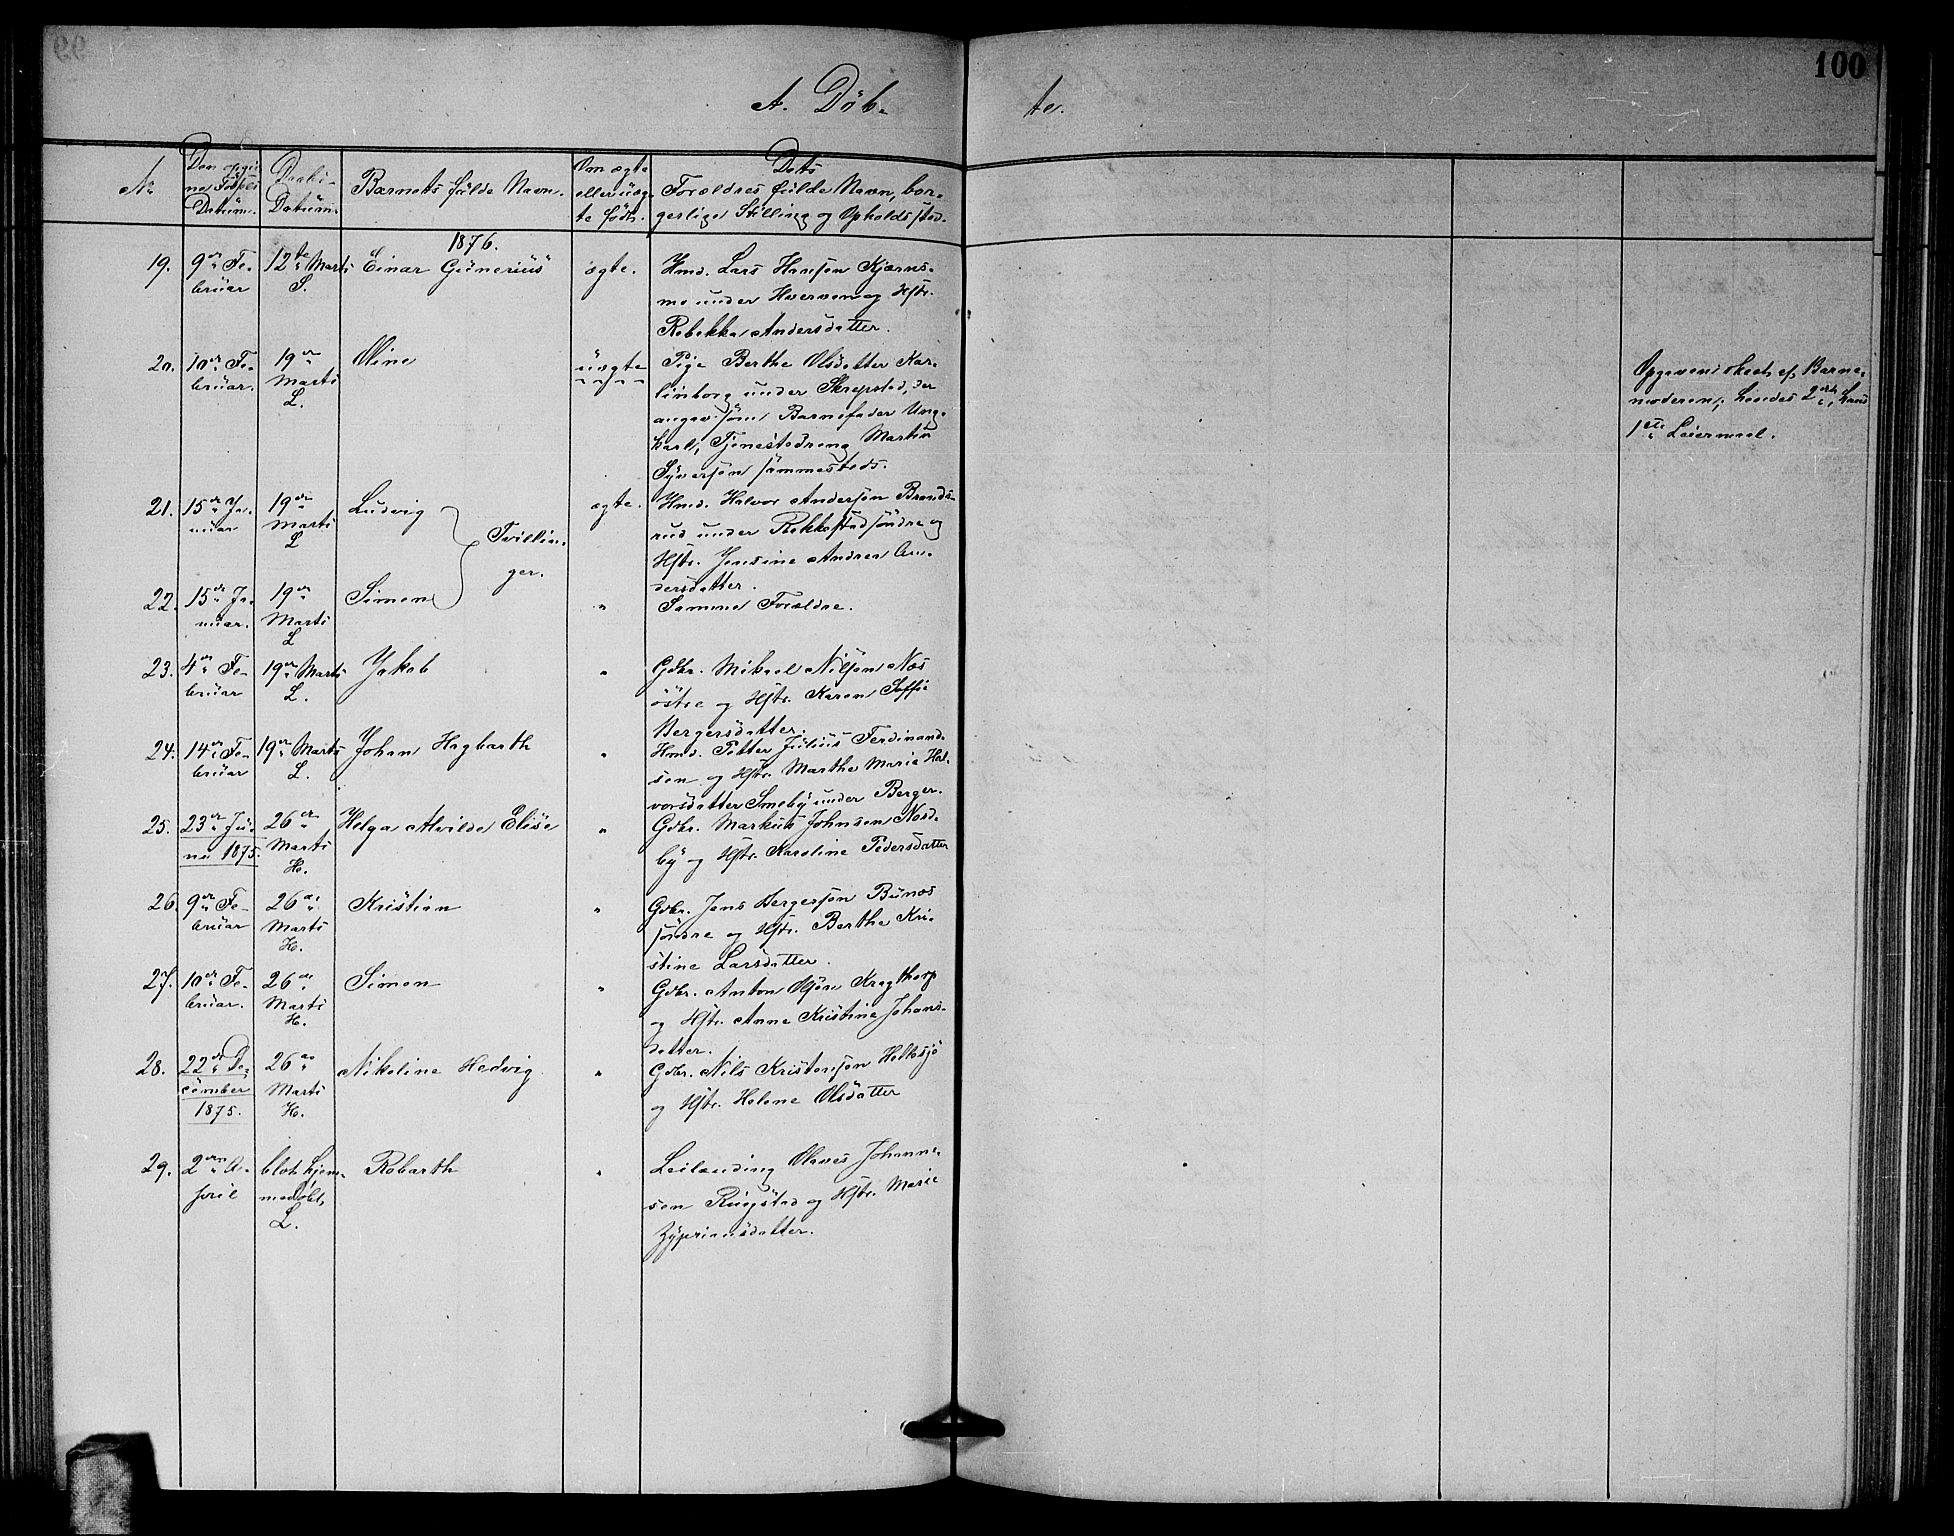 100
A. Döb-
te.
No
Den opgiv-
ne Födsels
Datüm.
Daabs-
Datüm.
Barnets fülde Navn.
Om ægte
eller üæg-
te född.
Dets
Forældres fülde Navn, bor-
gerlige Stilling og Opholdssted.
1876.
19. 9de Fe-
bruar
12te Marts
S.
Einar Günerius
ægte.
Hmd. Lars Hansen Kjærns-
mo under Hverven og Hstr.
Rebekka Andersdatter.
20. 10de Fe-
bruar.
19de
Marts
L.
Oline
üægte
Pige Berthe Olsdatter Kar-
linborg under Skrepstad, der
angav som Barnefader Ung-
karl, Tjenestedreng Martin
Syversen sammesteds.
Opgivende skeet af Barne-
moderen; hendes 2det, hans
1ste Leiermaal.
21. 15de Ja-
nuar
19de
Marts
L
Ludvig
Tvillin-
ger.
ægte.
Hmd. Halvor Andersen Brends-
rud under Rekkestad söndre og
Hstr. Jensine Andrea An-
dersdatter.
22. 15de Ja-
nuar.
19de
Marts
L
Simen
"
Samme Forældre.
23. 4de Fe-
bruar
19de Marts
L.
Jakob
"
Gdbr. Mikael Nilsen Næs
östre og Hstr. Karen Soffie
Bergersdatter.
24. 14de Fe-
bruar
19de Marts
L.
Johan Hagbarth
"
Hmd. Petter Julius Ferdinand-
sen og Hstr. Marthe Marie Hal-
vorsdatter Smeby under Berger.
25. 23de Jü-
ni 1875.
26de
Marts
H.
Helga Alvilde Elise
"
Gdbr. Markus Johnsen Nord-
by og Hstr. Karoline Pedersdatter
26. 9de Fe-
bruar
26de
Marts
H.
Kristian
"
Gdbr. Jens Bergersen Bünæs
söndre og Hstr. Berthe Kri-
stine Larsdatter.
27. 10de Fe-
bruar.
26de
Marts
H.
Simen
"
Gdbr. Anton Olsen Kragthorp
og Hstr. Anne Kristine Johans-
datter.
28. 22de De-
cember
1875.
26de
Marts
H.
Nikoline Hedvig
"
Gdbr. Nils Kristensen Heltesjö
og Hstr. Helene Olsdatter
29. 2den A-
pril
blot hjem-
medöbt,
L.
Robarth
"
Leilending Olaves Johanne-
sen Ringstad og Hstr. Marie
Zypriansdatter.